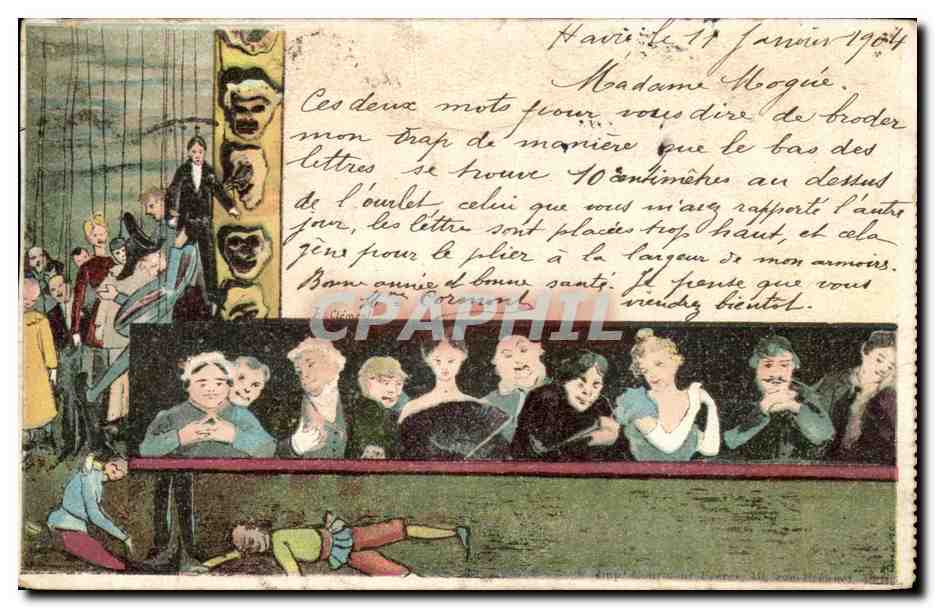 Havre le 11 Janvier 1904
Madame Mogué.
Ces deux mots pour vous dire de broder
mon drap de manière que le bas des
lettres se trouve 10 centimètres au dessus
de l'ourlet, celui que vous m'avez rapporté l'autre
jour, les lettres sont placées trop haut, et cela
gène pour le plier à la largeur de mon armoire.
Bonne année et bonne santé. Je pense que vous
viendrez bientôt.
Mme Cormont
CPARPHIL